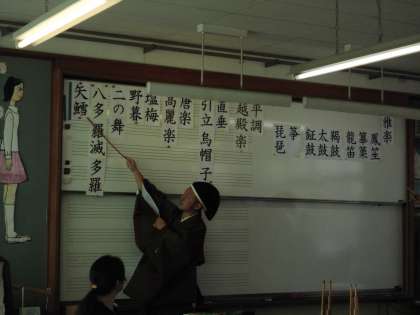 雅楽
鳳笙
篳篥
龍笛
鞨鼓
太鼓
鉦鼓
箏
琵琶
平調
越殿楽
直垂
引立烏帽子
唐楽
高麗楽
塩梅
野暮
二の舞
八多羅滅多羅
矢鱈